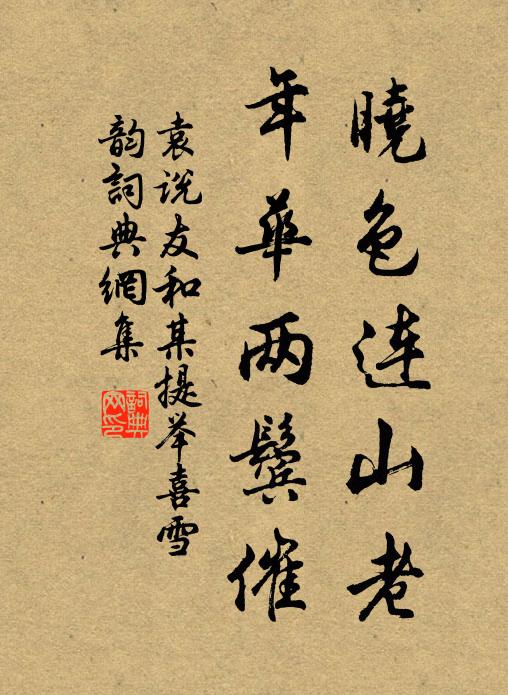 曉色連山老
年華两鬢催
袁说友和某提举喜雪
韵詞典網集
詞典网印